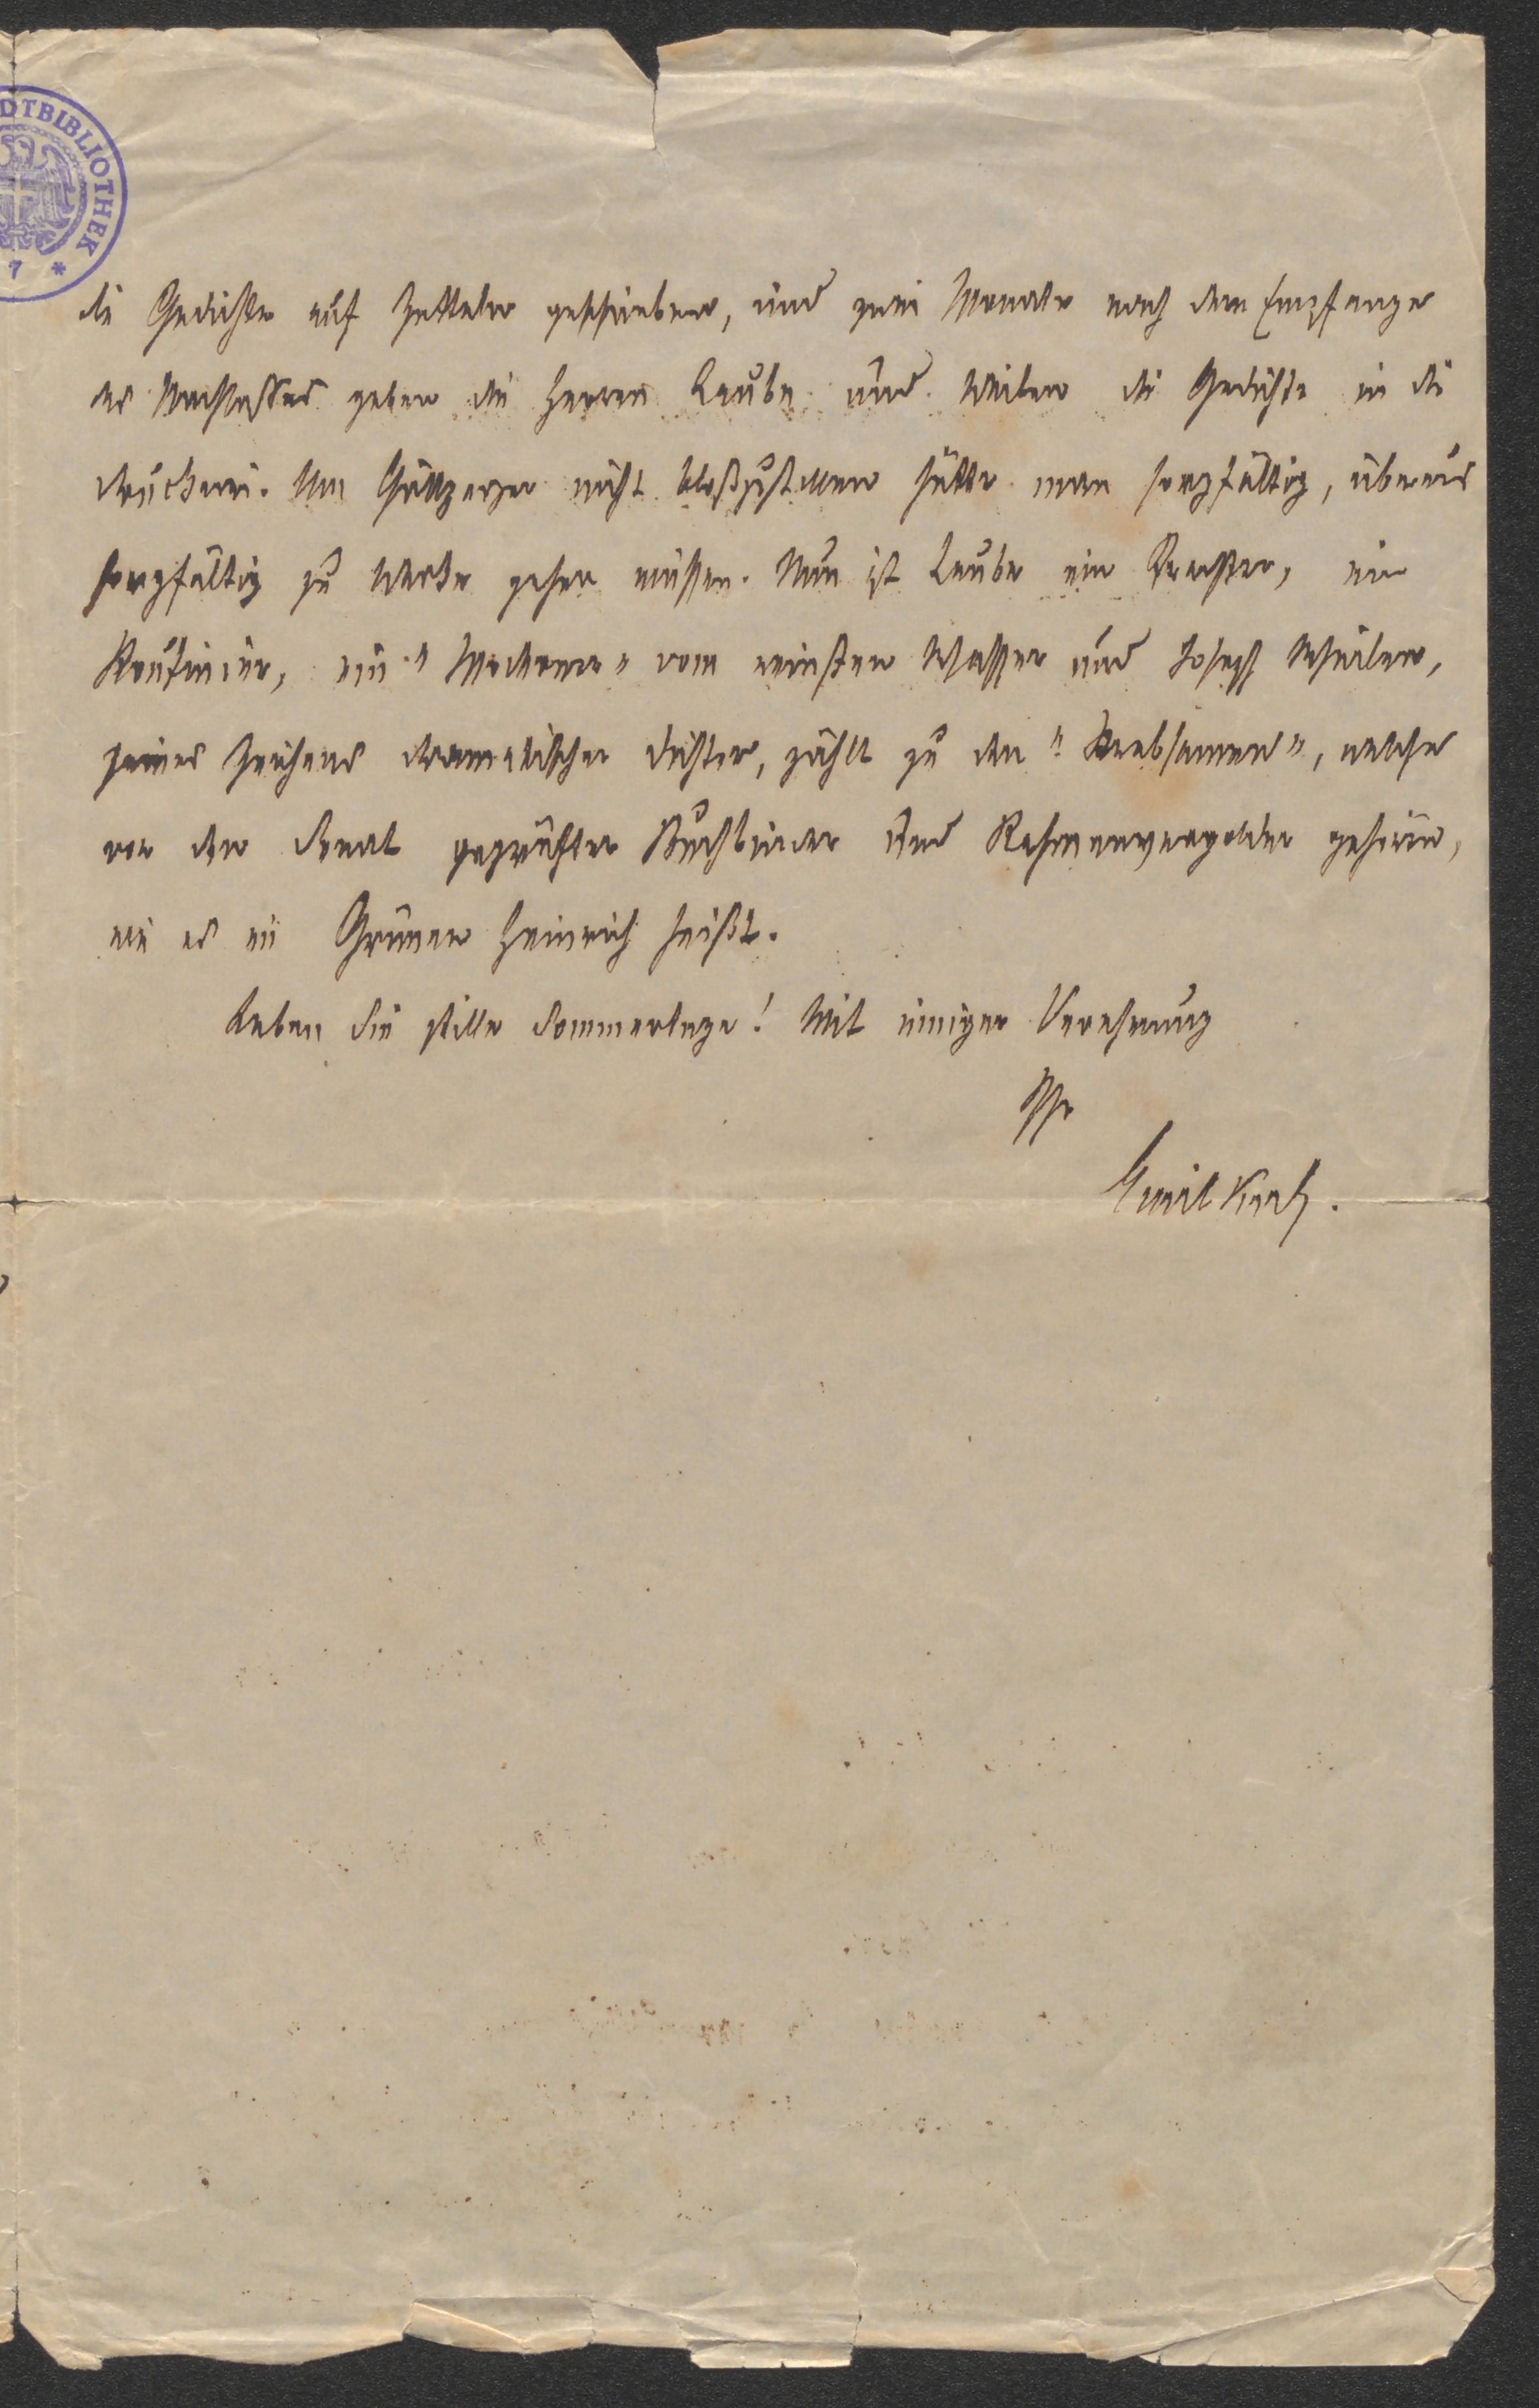 DTBIBLIOTHEK
7 *
die Gedichte auf Zetteln geschrieben, und zwei Monate nach dem Empfange
des Nachlasses geben die Herren Laube und Weilen die Gedichte in die
Druckerei. Um Grillparzer nicht bloßzustellen hätte man sorgfältig, überaus
sorgfältig zu Werke gehen müssen. Nun ist Laube ein
Routinier, ein " " vom reinsten Wasser und Joseph Weilen,
seines Zeichens dramatischer Dichter, zählt zu den " ", welche
vor den Senat geprüfter Buchbinder und Rahmenvergolder gehören,
wie es im Grünen Heinrich heißt.
Leben Sie stille Sommertage! Mit inniger Verehrung
Ihr
Emil Kuh.